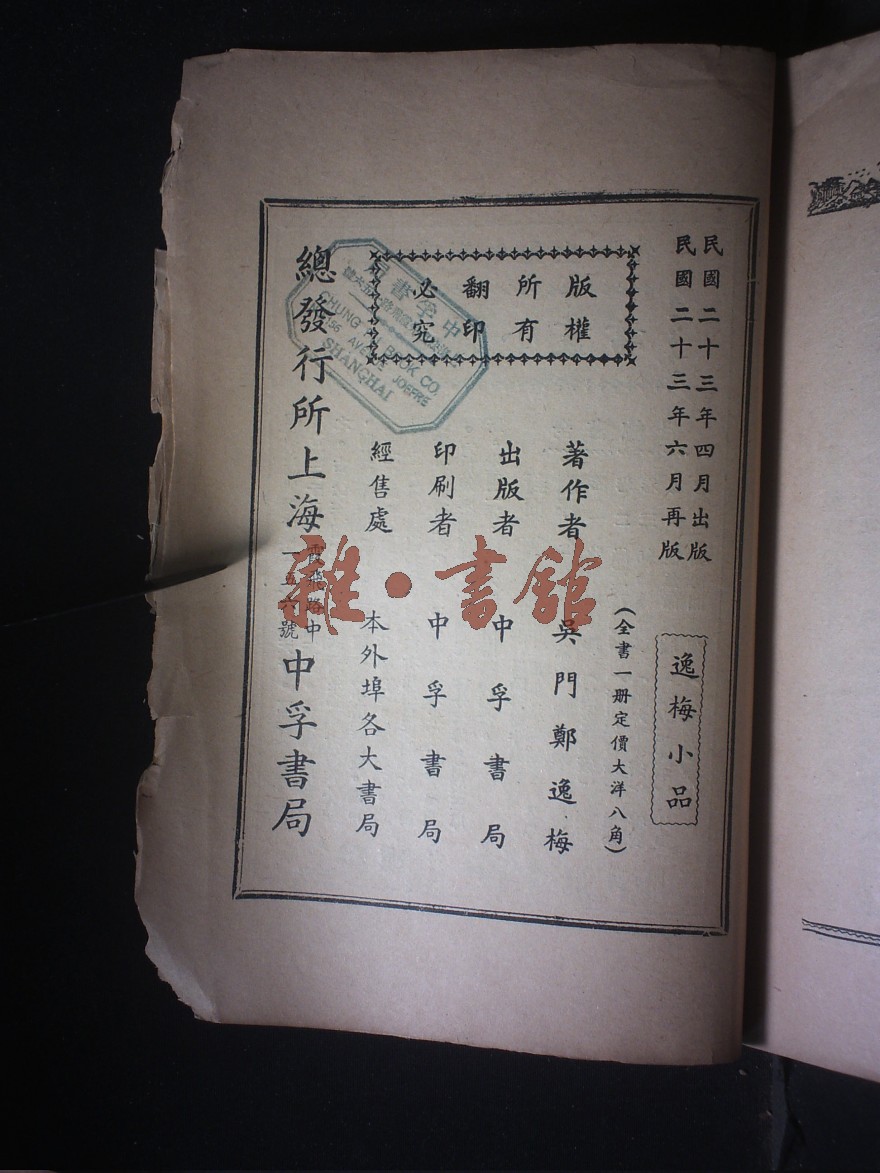 民國二十三年四月出版
民國二十三年六月再版
逸梅小品
(全書一册定價大洋八角)
版權
所有
翻印
必究
著作者 吳門鄭逸梅
出版者 中孚書局
印刷者 中孚書局
經售處 本外埠各大書局
總發行所上海霞飛路中一五六號中孚書局
中孚書局
CHUNG BOOK CO.
156 AVENUE JOEFRE
SHANGHAI
雜·書館